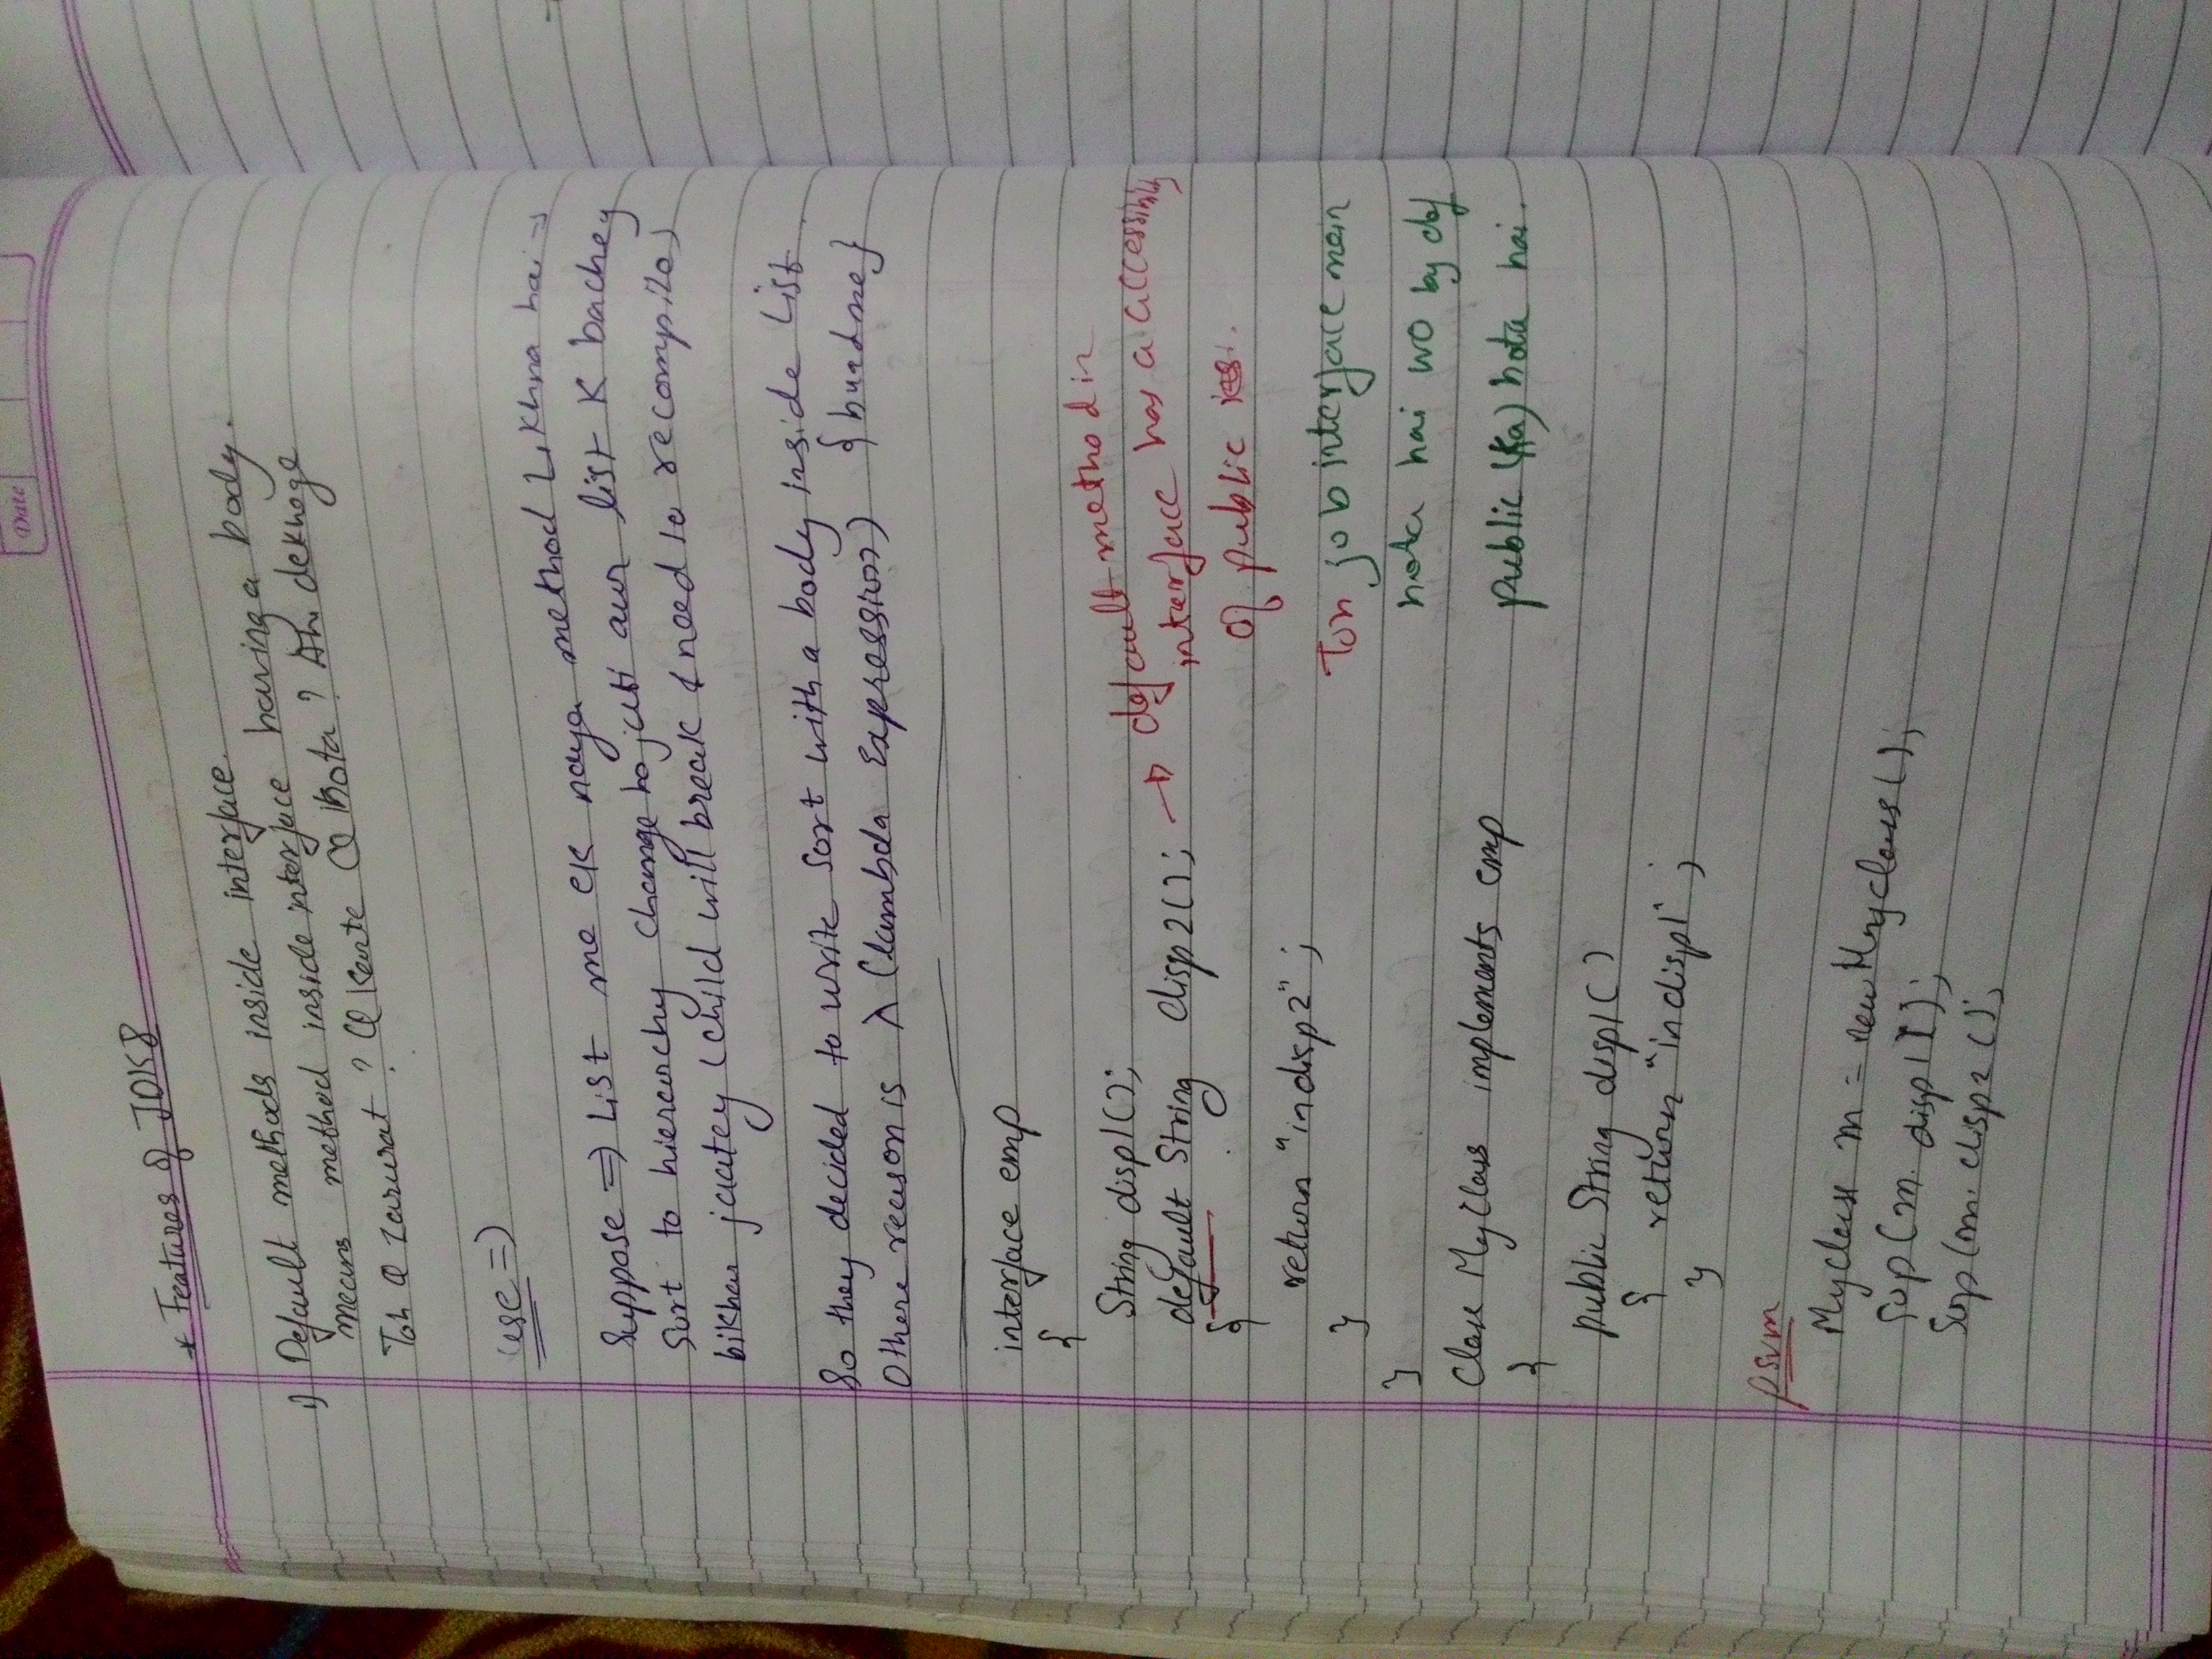 Date
* Features of JDK8
1) Default methods inside interface.
means method inside interface having a body.
Toh Q Zarurat ? Q Karte Q Hota ? Ah dekhoge
use =>
Suppose => List me ek naya method Likhna hai →
Sort to hierarchy change ho jati aur list K bachey
bikhar jaatey (child will break & need to recompile)
So they decided to write Sort with a body inside List
Othere reason is λ (lambda Expression) {baadme}
interface emp
{
String disp1();
default String disp2(); → default method in
interface has a accessibility
{
of public
return "in disp2";
Toh job interface mein
}
hota hai wo by def
}
Class MyClass implements emp
public (ka) hota hai.
{
public String disp1()
{ return "in disp1";
}
psvm
Myclass m = new Myclass();
Sop(m. disp1());
Sop(m. disp2();